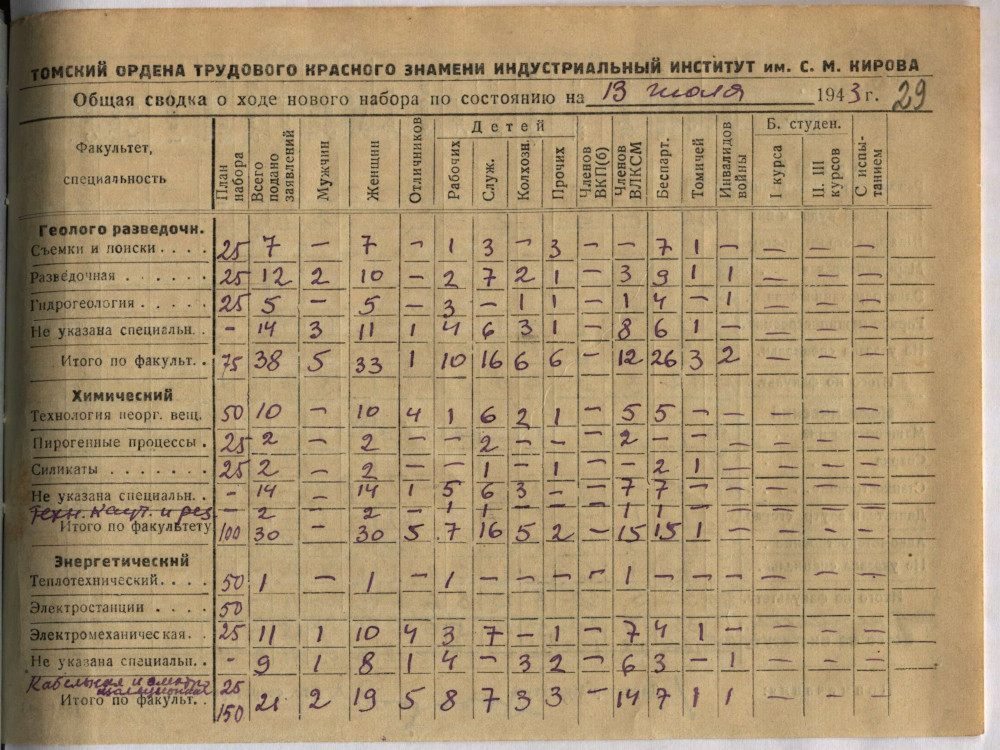 ТОМСКИЙ ОРДЕНА ТРУДОВОГО КРАСНОГО ЗНАМЕНИ ИНДУСТРИАЛЬНЫЙ ИНСТИТУТ им. С. М. КИРОВА
Общая сводка о ходе нового набора по состоянию на 13 июля 1943 г. 29
Факультет, специальность План набора Всего подано заявлений Мужчин Женщин Отличников Детей Рабочих Служ. Колхозн. Прочих Членов ВКП(б) Членов ВЛКСМ Беспарт. Томичей Инвалидов войны Б. студен. I курса II. III курсов С испытанием
Геолого разведочн.
Съемки и поиски . . . . 25 7 — 7 — 1 3 — 3 — — 7 1 — — — —
Разведочная . . . . . . 25 12 2 10 — 2 7 2 1 — 3 9 1 1 — — —
Гидрогеология . . . . . 25 5 — 5 — 3 — 1 1 — 1 4 — 1 — — —
Не указана специальн. . — 14 3 11 1 4 6 3 1 — 8 6 1 — — — —
Итого по факульт. . 75 38 5 33 1 10 16 6 6 — 12 26 3 2 — — —
Химический
Технология неорг. вещ. 50 10 — 10 4 1 6 2 1 — 5 5 — — — — —
Пирогенные процессы . 25 2 — 2 — — 2 — — — 2 — — — — — —
Силикаты . . . . . . . 25 2 — 2 — — 1 — 1 — — 2 1 — — — —
Не указана специальн. . — 14 — 14 1 5 6 3 — — 7 7 — — — — —
Техн. Кауч. и рез. — 2 — 2 — 1 1 — — — 1 1 — — — — —
Итого по факультету 100 30 — 30 5 7 16 5 2 — 15 15 1 — — — —
Энергетический
Теплотехнический. . . . 50 1 — 1 — 1 — — — — 1 — — — — — —
Электростанции . . . . 50
Электромеханическая. . 25 11 1 10 4 3 7 — 1 — 7 4 1 — — — —
Не указана специальн. . — 9 1 8 1 4 — 3 2 — 6 3 — 1 — — —
Кабельная и изоляционная 25
Итого по факульт. . 150 21 2 19 5 8 7 3 3 — 14 7 1 1 — — —